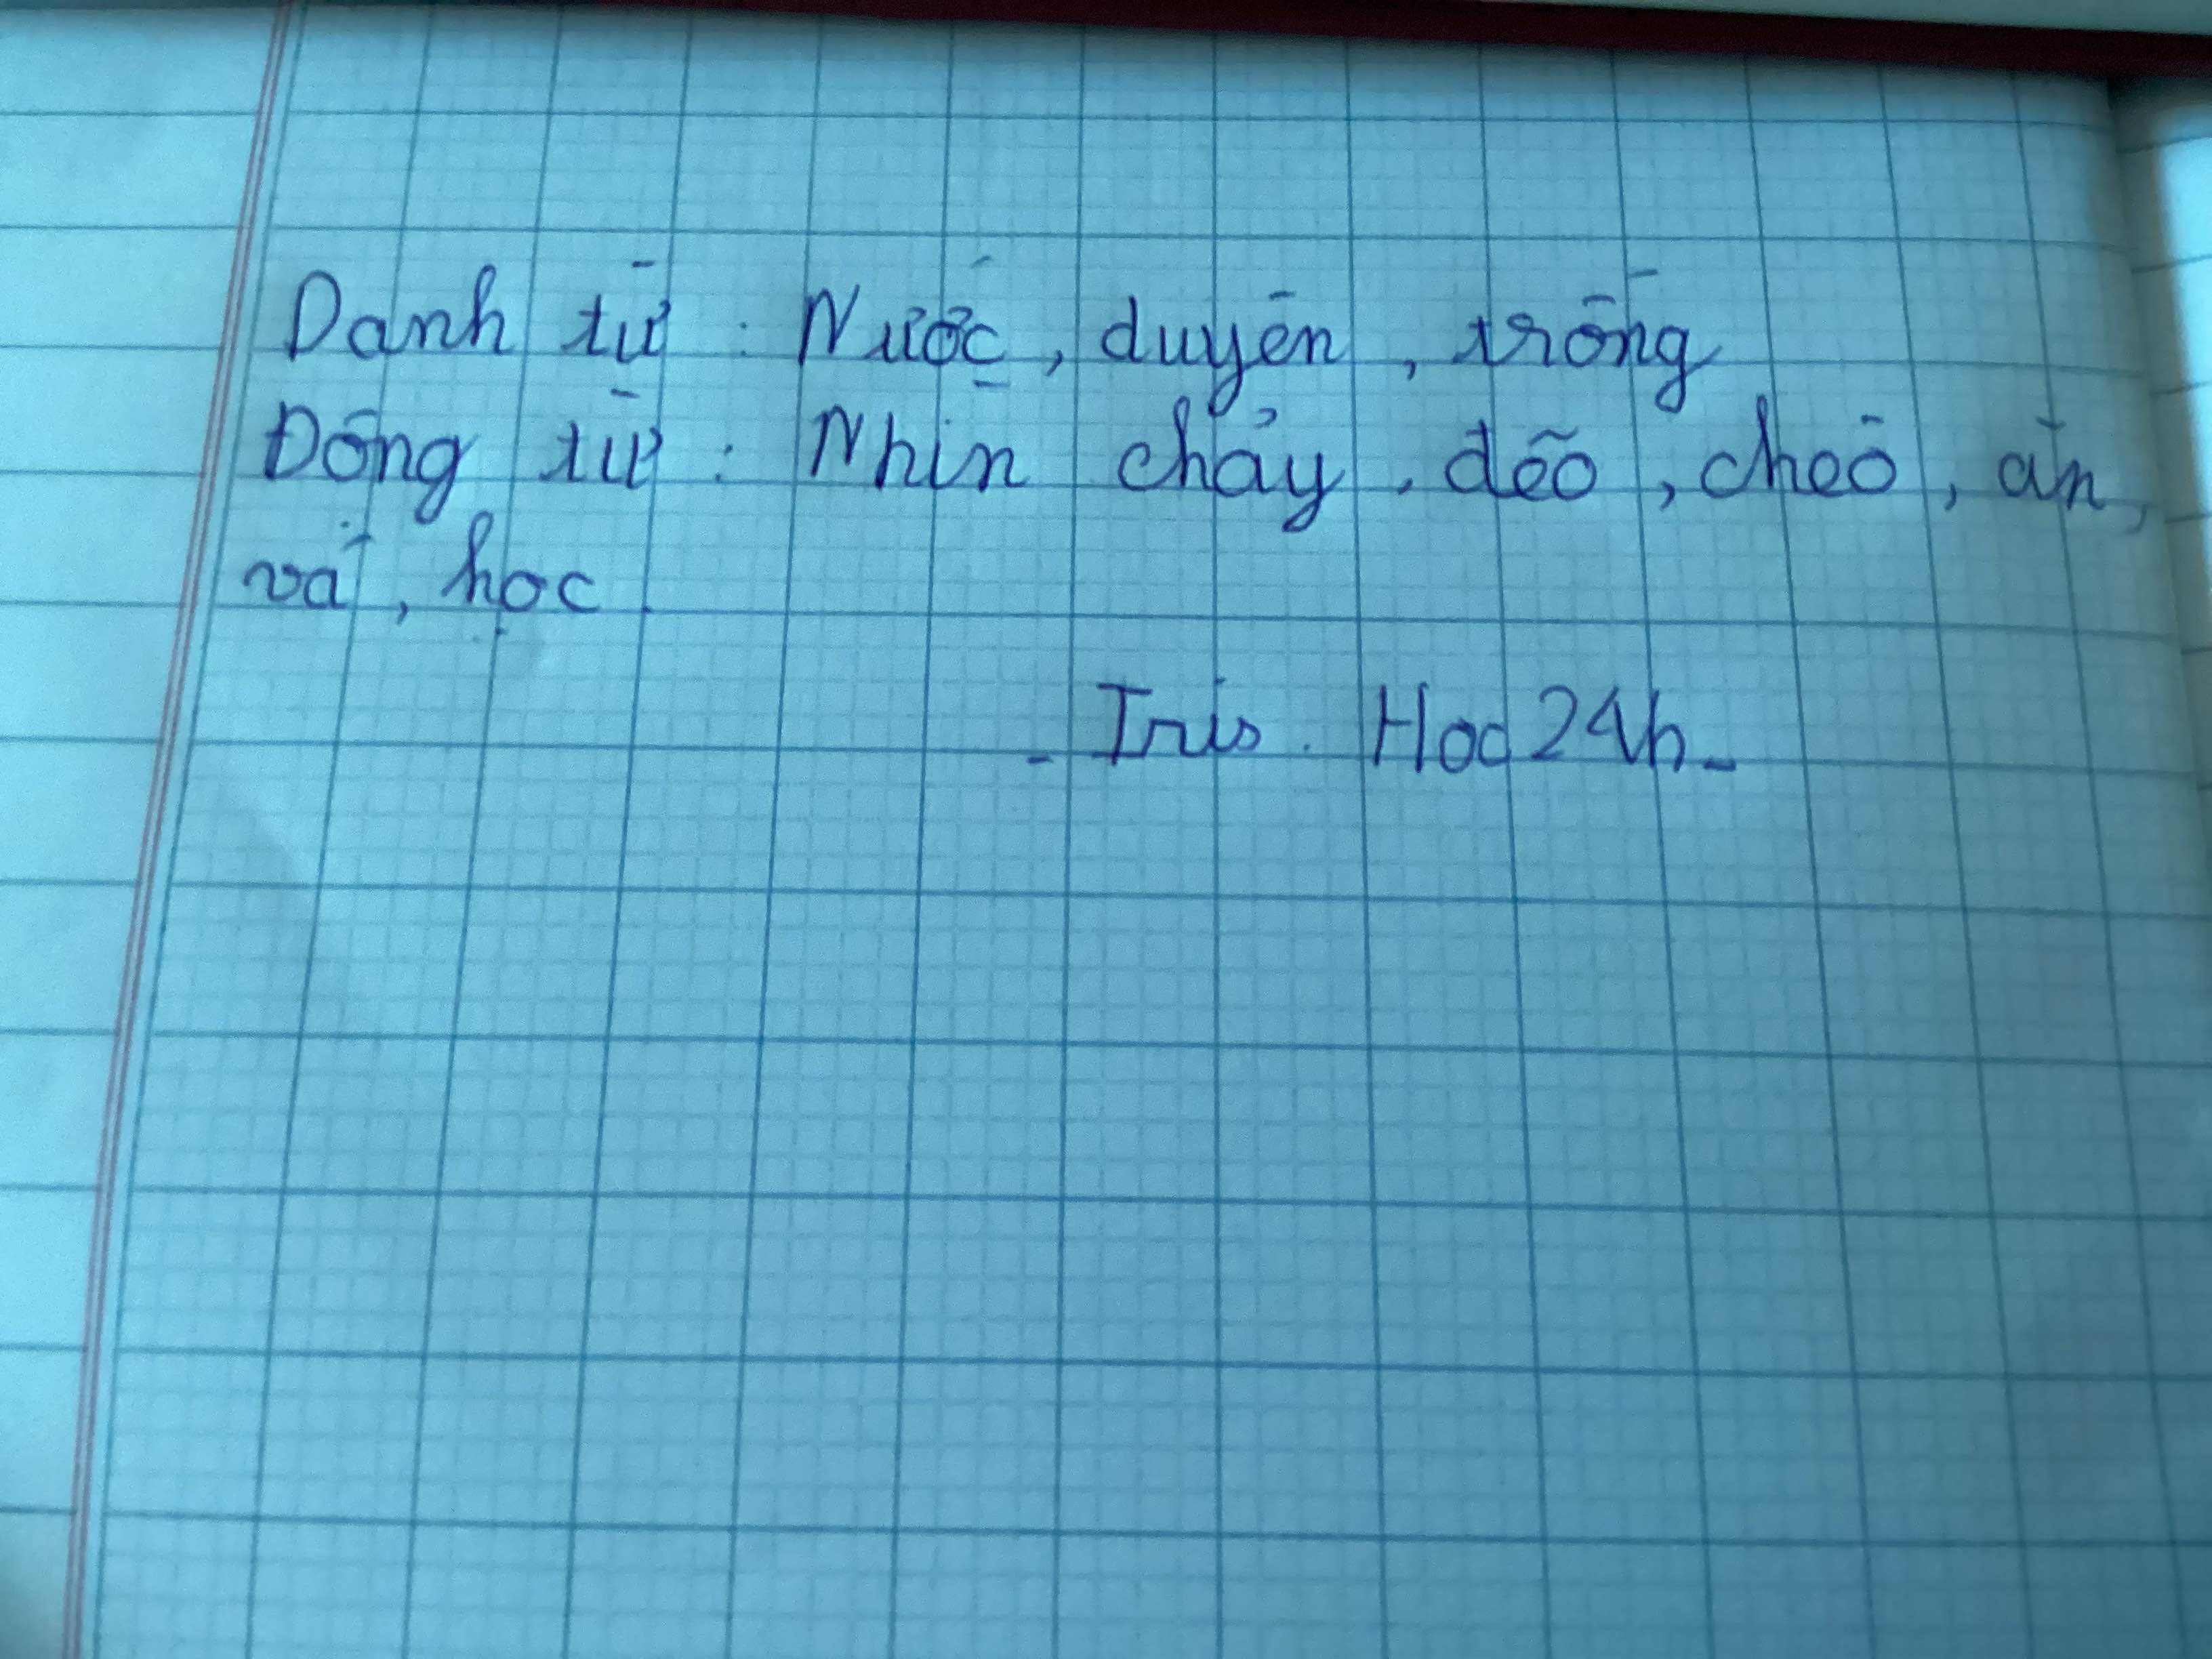 Danh từ : Nước, duyên, trồng
Động từ : Nhìn chảy, dẽo, cheò, ăn,
vả, học.
- Iris . Hoc24h-